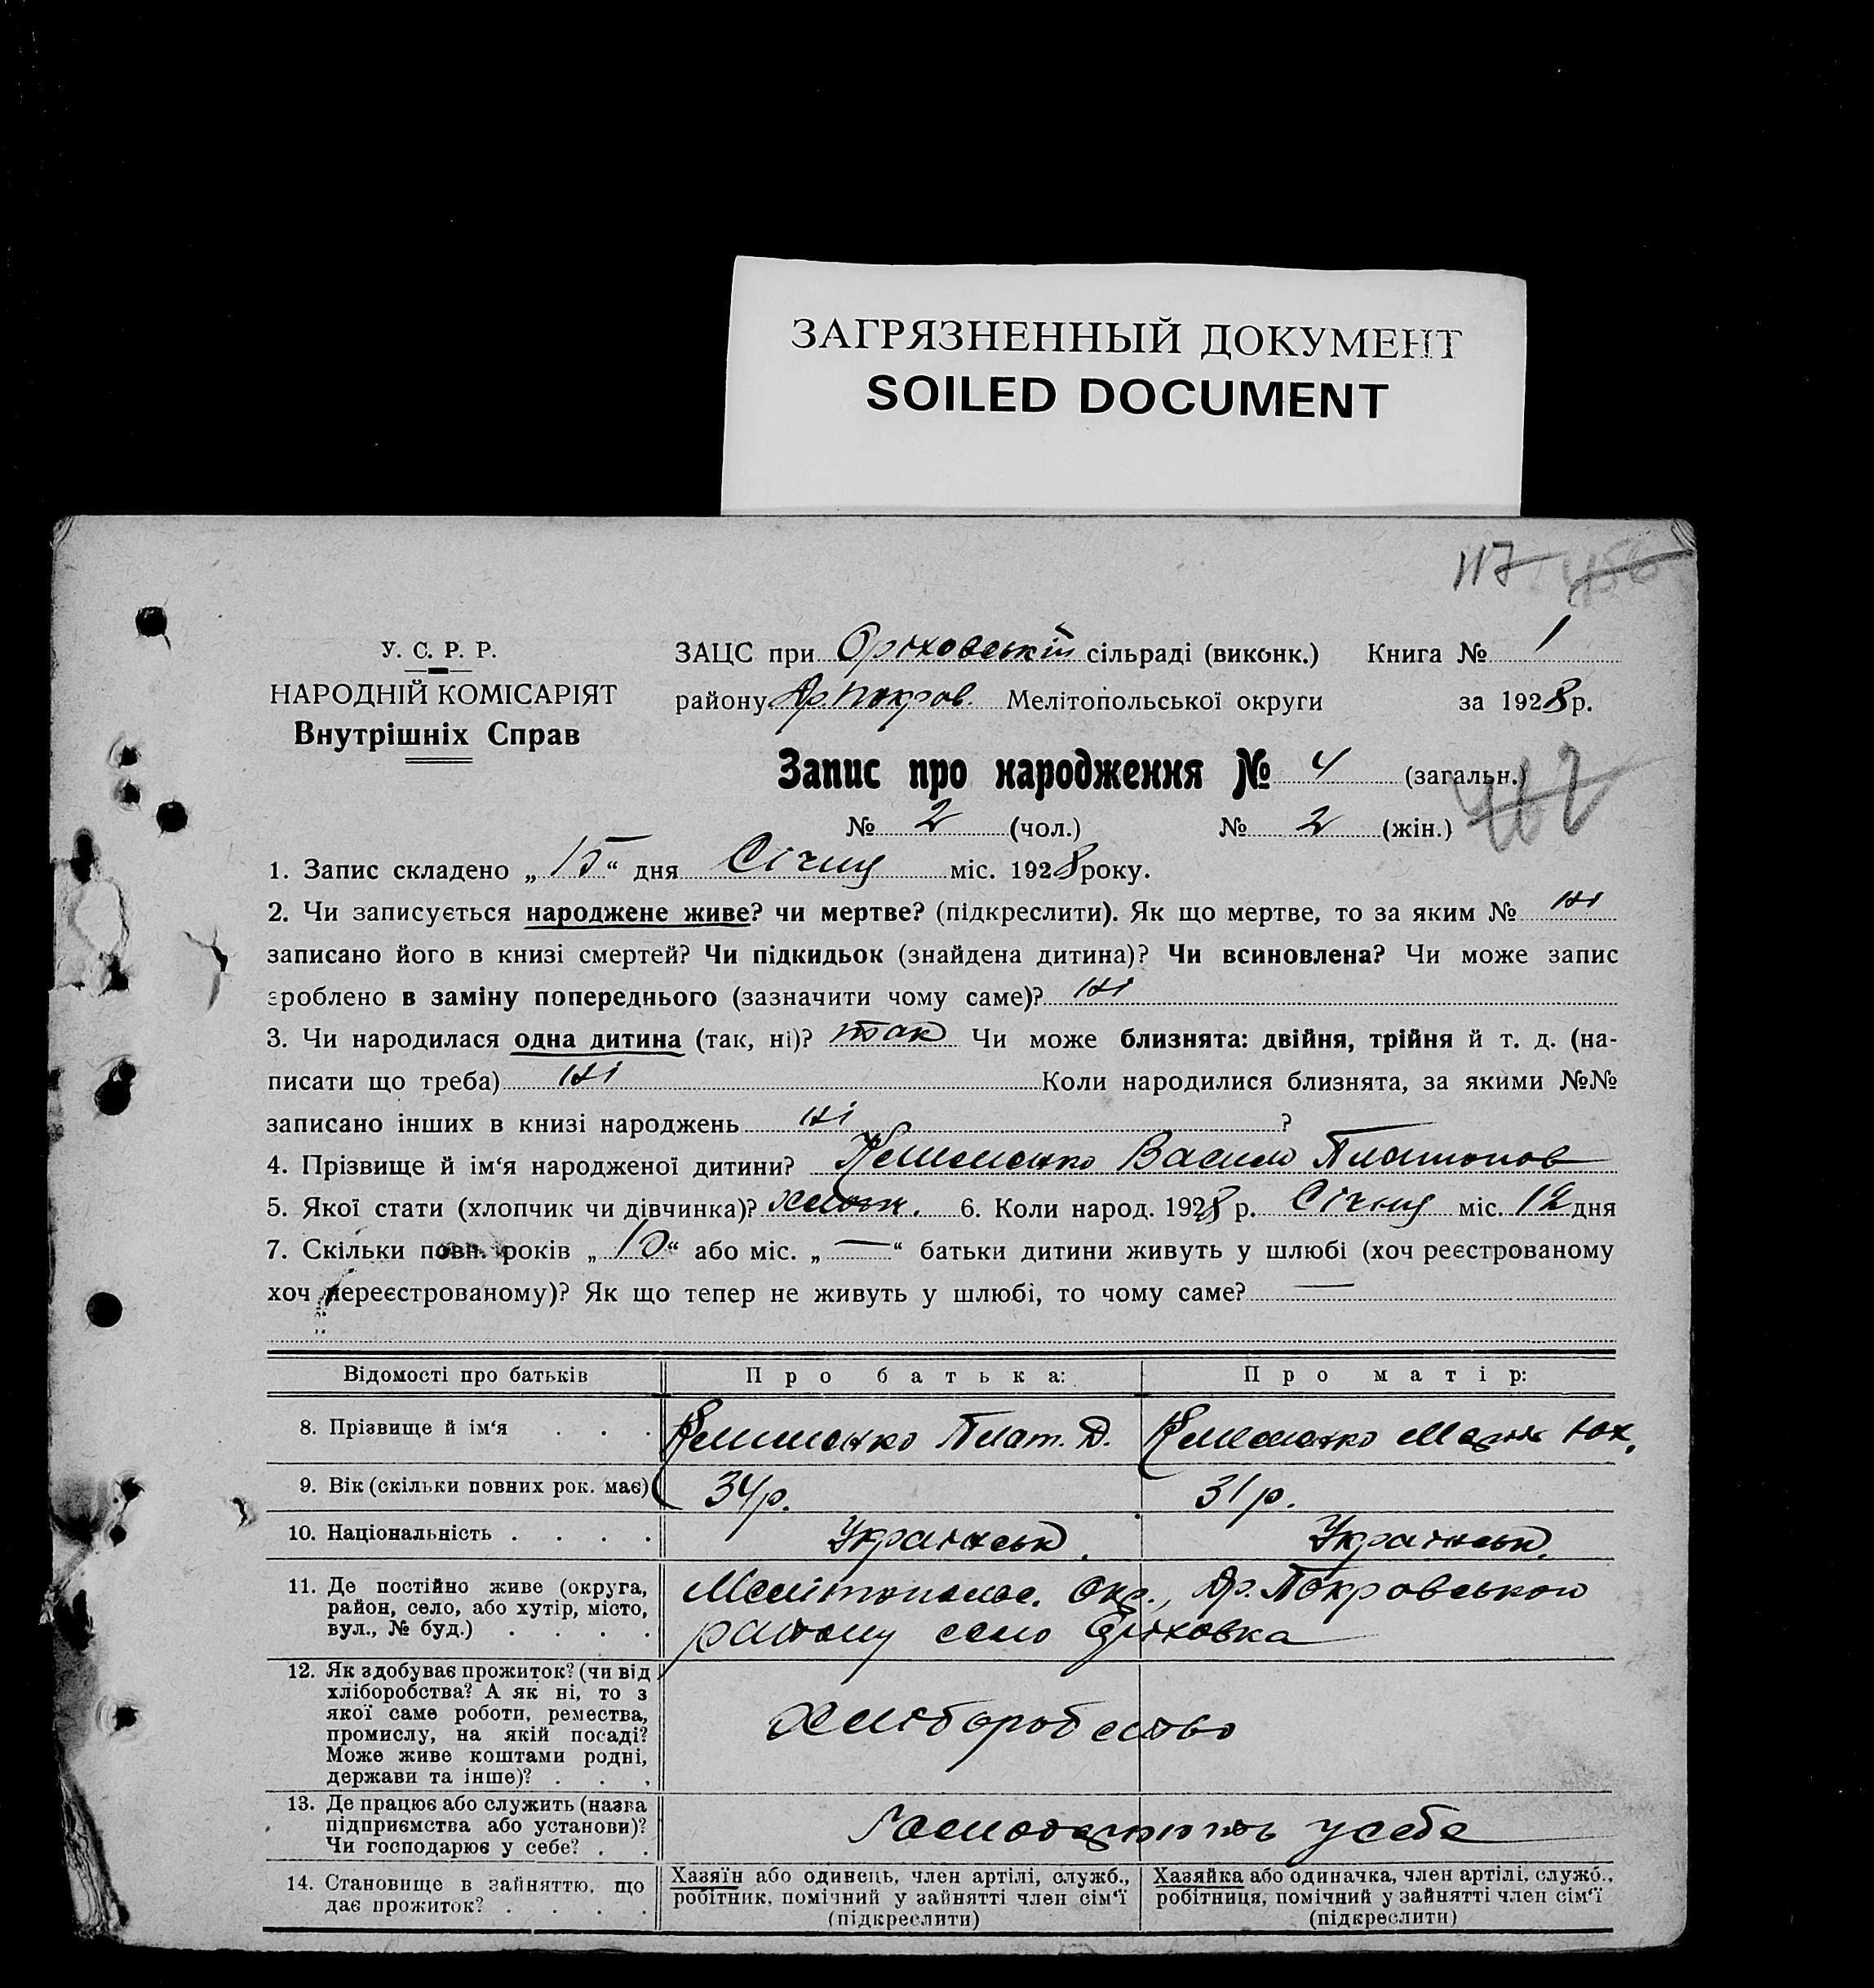 ЗАГРЯЗНЕННЫЙ ДОКУМЕНТ
SOILED DOCUMENT
117 456
У. С. Р. Р.
НАРОДНІЙ КОМІСАРІЯТ
Внутрішніх Справ
ЗАЦС при Оріховській сільраді (виконк.) Книга № 1
району Др. Покров. Мелітопольської округи за 1928 р.
Запис про народження № 4 (загальн.)
№ 2 (чол.) № 2 (жін.)
1. Запис складено „ 15 “ дня Січня міс. 1928 року.
2. Чи записується народжене живе? чи мертве? (підкреслити). Як що мертве, то за яким № ні
записано його в книзі смертей? Чи підкидьок (знайдена дитина)? Чи всиновлена? Чи може запис
зроблено в заміну попереднього (зазначити чому саме)? ні
3. Чи народилася одна дитина (так, ні)? так Чи може близнята: двійня, трійня й т. д. (на-
писати що треба) ні Коли народилися близнята, за якими №№
записано інших в книзі народжень ні ?
4. Прізвище й ім‘я народженої дитини? Василь Платонов
5. Якої стати (хлопчик чи дівчинка)? хлопч. 6. Коли народ. 1928 р. Січня міс. 12 дня
7. Скільки повн. років „ 10 “ або міс. „ — “ батьки дитини живуть у шлюбі (хоч реєстрованому
хоч нереєстрованому)? Як що тепер не живуть у шлюбі, то чому саме? —
Відомості про батьків Про батька: Про матір:
8. Прізвище й ім‘я . . . Плат. Д. Мария Юх.
9. Вік (скільки повних рок. має) 34 р. 31 р.
10. Національність . . . . Українськ. Українськ.
11. Де постійно живе (округа,
район, село, або хутір, місто,
вул., № буд.) . . . .
Мелітопольс. Окр., Др. Покровського
району село Оріховка
12. Як здобуває прожиток? (чи від
хліборобства? А як ні, то з
якої саме роботи, ремества,
промислу, на якій посаді?
Може живе коштами родні,
держави та інше)? . . .
хліборобство
13. Де працює або служить (назва
підприємства або установи)?
Чи господарює у себе? . .
Господарюють у себе
14. Становище в зайняттю, що
дає прожиток? . . . .
Хазяїн або одинець, член артілі, служб.,
робітник, помічний у зайнятті член сім‘ї
(підкреслити)
Хазяйка або одиначка, член артілі, служб.,
робітниця, помічний у зайнятті член сім‘ї
(підкреслити)